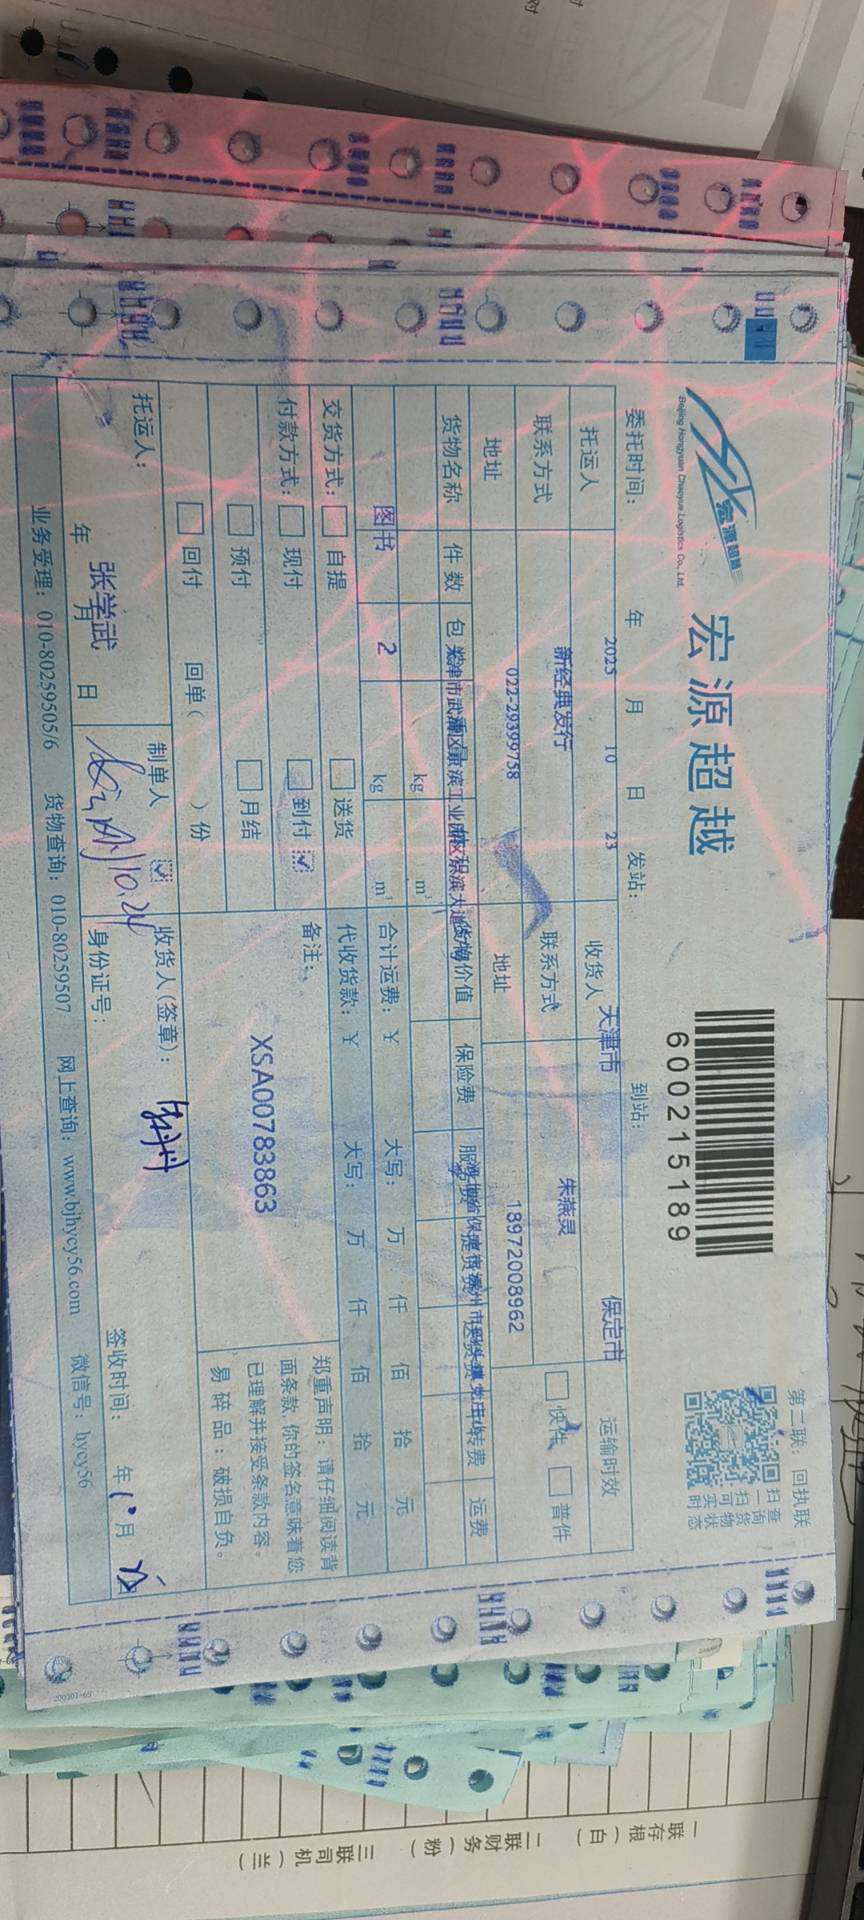 第二联：回执联
宏源超越
Beijing Hongyuan Chaoyue Logistics Co., Ltd.
宏源超越
600215189
扫一扫 查询货物实时状态
委托时间： 2025 年 10 月 23 日 发站： 天津市 到站： 保定市
托运人 新经典发行 收货人 朱燕灵 运输时效
联系方式 022-29399758 联系方式 18972008962 快件 普件
地址 地址
货物名称 件数 保险费 运费
kg m³
图书 2 kg m³ 合计运费：￥ 大写： 万 仟 佰 拾 元
交货方式： 自提 送货 代收货款：￥ 大写： 万 仟 佰 拾 元
付款方式： 现付 到付 备注：
预付 月结 XSA00783863
回付 回单（ ）份
郑重声明：请仔细阅读背
面条款，你的签名意味着您
已理解并接受条款内容。
易碎品：破损自负。
托运人： 张学武 制单人 收货人(签章)：
年 月 日 10.24 身份证号： 签收时间： 年 10 月
业务受理：010-80259505/6 货物查询：010-80259507 网上查询：www.bjhycy56.com 微信号：hycy56
一联存根（白） 二联财务（粉） 三联司机（兰）